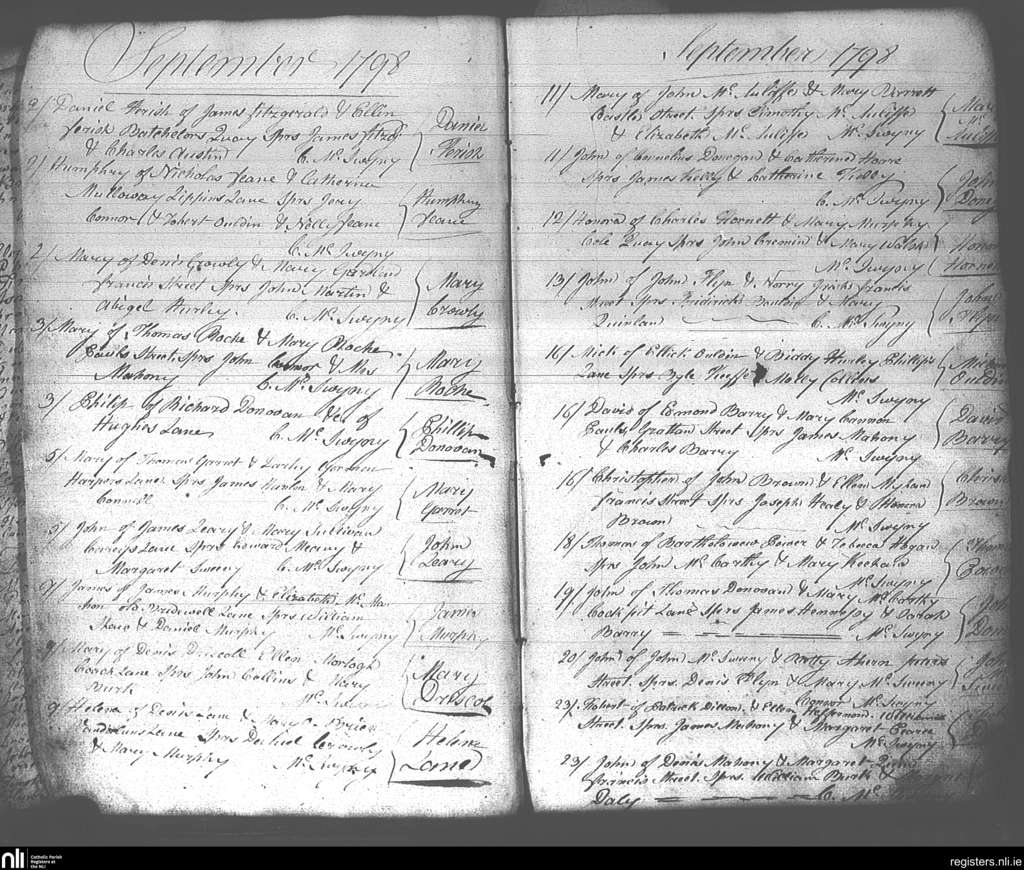 September 1798
2/ Daniel Ferish of James fitzgerald & Ellen
ferish Batchelors Quay Sprs James fitzd
& Charles Austin C. Mc Swyny
Daniel
Ferish
2/ Humphry of Nicholas Jeane & Catherine
Mullowny Lippins Lane Sprs Jerry
Connor & Robert Ouldin & Nelly Jeane
C. Mc Swyny
Humphry
Jeane
2/ Mary of Denis Crowly & Mary
francis Street Sprs John Martin &
Abigel Hurley C. Mc Swyny
Mary
Crowly
3/ Mary of Thomas Roche & Mary Roche
Pauls Street Sprs John Connor & Mrs
Mahony C. Mc Swyny
Mary
Roche
3/ Philip of Richard Donovan &c of
Hughes Lane C. Mc Swyny
Phillip
Donovan
5/ Mary of Thomas Garrot &
Harpers Lane Sprs James & Mary
Connell C. Mc Swyny
Mary
Garrot
5/ John of James Leary & Mary Sullivan
Careys Lane Sprs Edward &
Margaret Sweeny C. Mc Swyny
John
Leary
9/ James of James Murphy & Elizabeth Mc Ma
hon old Bridewell Lane Sprs William
Shaw & Daniel Murphy Mc Swyny
James
Murphy
9/ Mary of Denis Driscoll Ellen
Coach Lane Sprs John Collins & Mary
Burk Mc Swyny
Mary
Driscol
9/ Helena of Denis Lane & Mary
Lane Sprs Crowly
& Mary Murphy Mc Swyny
Helena
Lane
September 1798
11/ Mary of John Mc Auliffe & Mary Barrett
Castle Street Sprs Timothy Mc Auliffe
& Elizabeth Mc Auliffe Mc Swyny
Mary
Mc
11/ John of Cornelius Donegan & Catherine
Sprs James & Catherine
C. Mc Swyny
John
Done
12/ Honora of Charles Hornett & Mary Murphy
Cole Quay Sprs John Cremin & Mary Walsh
Mc Swyny
Honor
Hornet
13/ John of John Flyn & Norry francis
Sprs & Mary
Quinlan C. Mc Swyny
John
Flyn
16/ Mick of Ellick Ouldin & Biddy Hurley Phillips
Lane Sprs & Molly Collins
Mc Swyny
Mick
Ouldin
16/ David of Edmond Barry & Mary Cannon
Grattan Street Sprs James Mahony
& Charles Barry Mc Swyny
David
Barry
16/ Christophen of John Brown & Ellen Mylan
francis Street Sprs Joseph Healy & Honora
Brown Mc Swyny
Chris
Brown
18/ Thomas of Bartholomew Power & Hogan
Sprs John Mc Carthy & Mary
Mc Swyny
Thom
19/ John of Thomas Donovan & Mary Mc Carthy
Cockpit Lane Sprs James Hennessy & Sarah
Barry Mc Swyny
Joh
Don
20/ John of John Mc Sweeny & Betty Aheron
Street Sprs Denis Flyn & Mary Mc Sweeny
Mc Swyny
John
23/ Robert of Patrick Dillon & Ellen
Street Sprs James Mahony & Margaret Pearce
Mc Swyny
23/ John of Denis Mahony & Margaret
francis Street Sprs William Burk &
Daly C. Mc
nli
Catholic Parish
Registers at
the NLI
registers.nli.ie